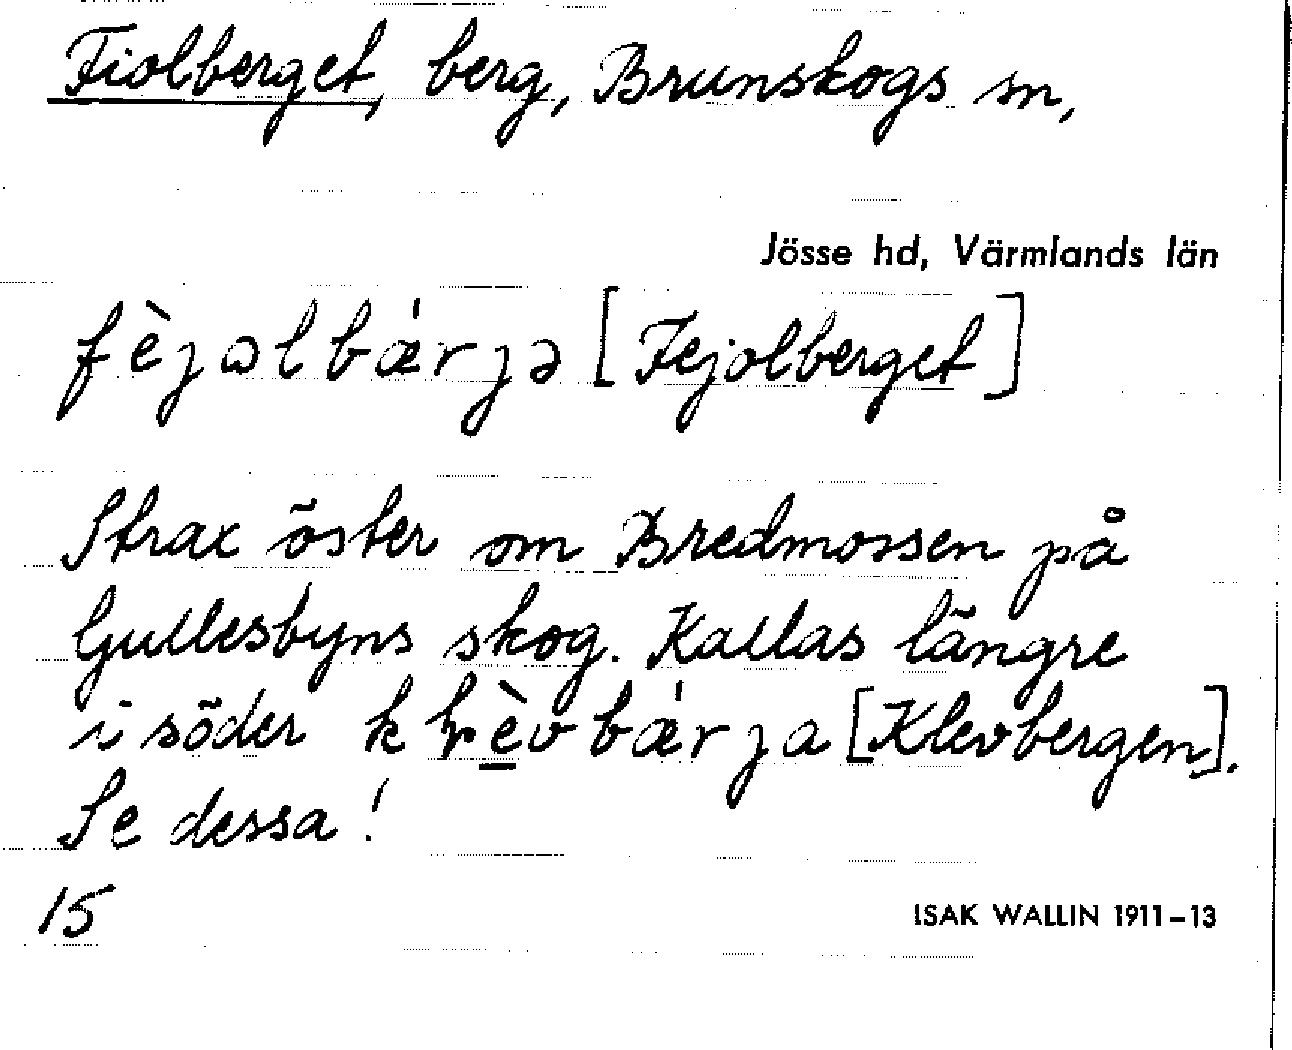 Fiolberget, berg, Brunskogs sn,
Jösse hd, Värmlands län
fèjωlbǽrjə [Fejolberget]
Strax öster om Bredmossen på
Gullesbyns skog. Kallas längre
i söder kḷèvbǽrja [Klevbergen].
Se dessa!
15
ISAK WALLIN 1911–13